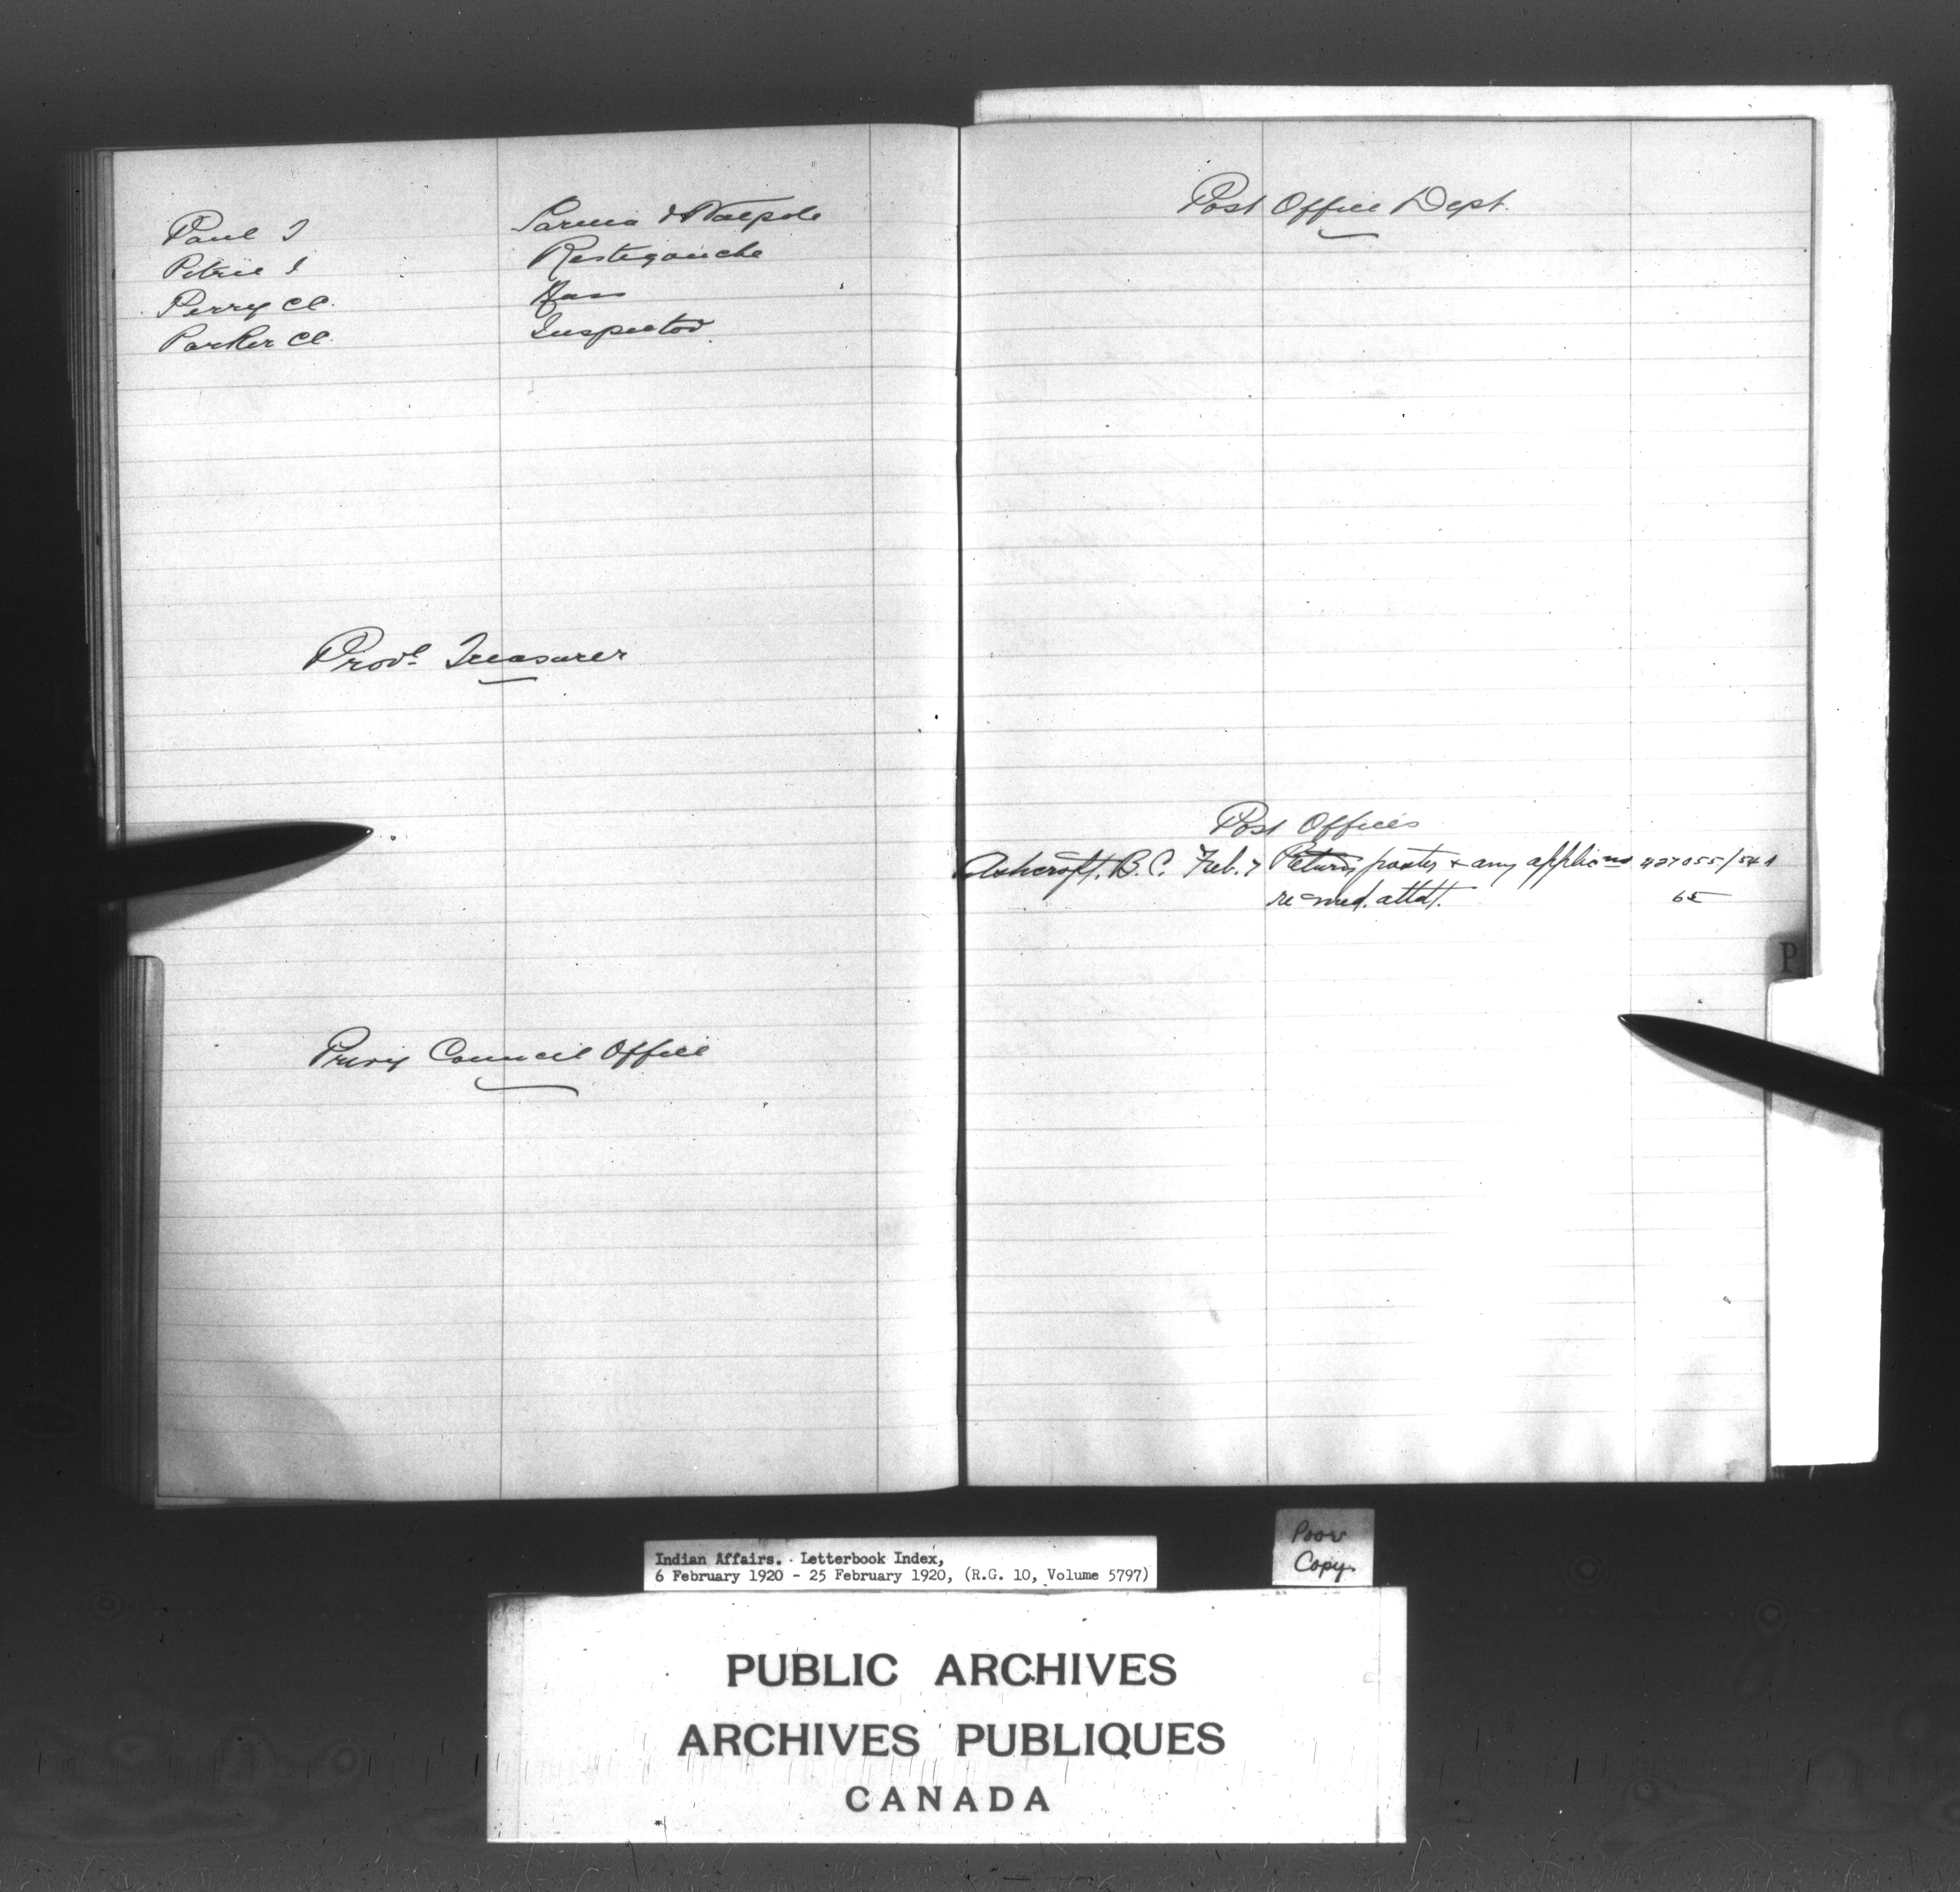 Paul J Sarnia & Walpole
Pitrie J Restigouche
Perry CC. Nass
Parker CC. Inspector
Provl. Treasurer
Privy Council Office
Post Office Dept.
Post Offices
Ashcroft, B.C. Feb. 7 Return poster & any applicns 427055/541
re med. attdt. 65
P
Poor
Copy
Indian Affairs. Letterbook Index,
6 February 1920 - 25 February 1920, (R.G. 10, Volume 5797)
PUBLIC ARCHIVES
ARCHIVES PUBLIQUES
CANADA